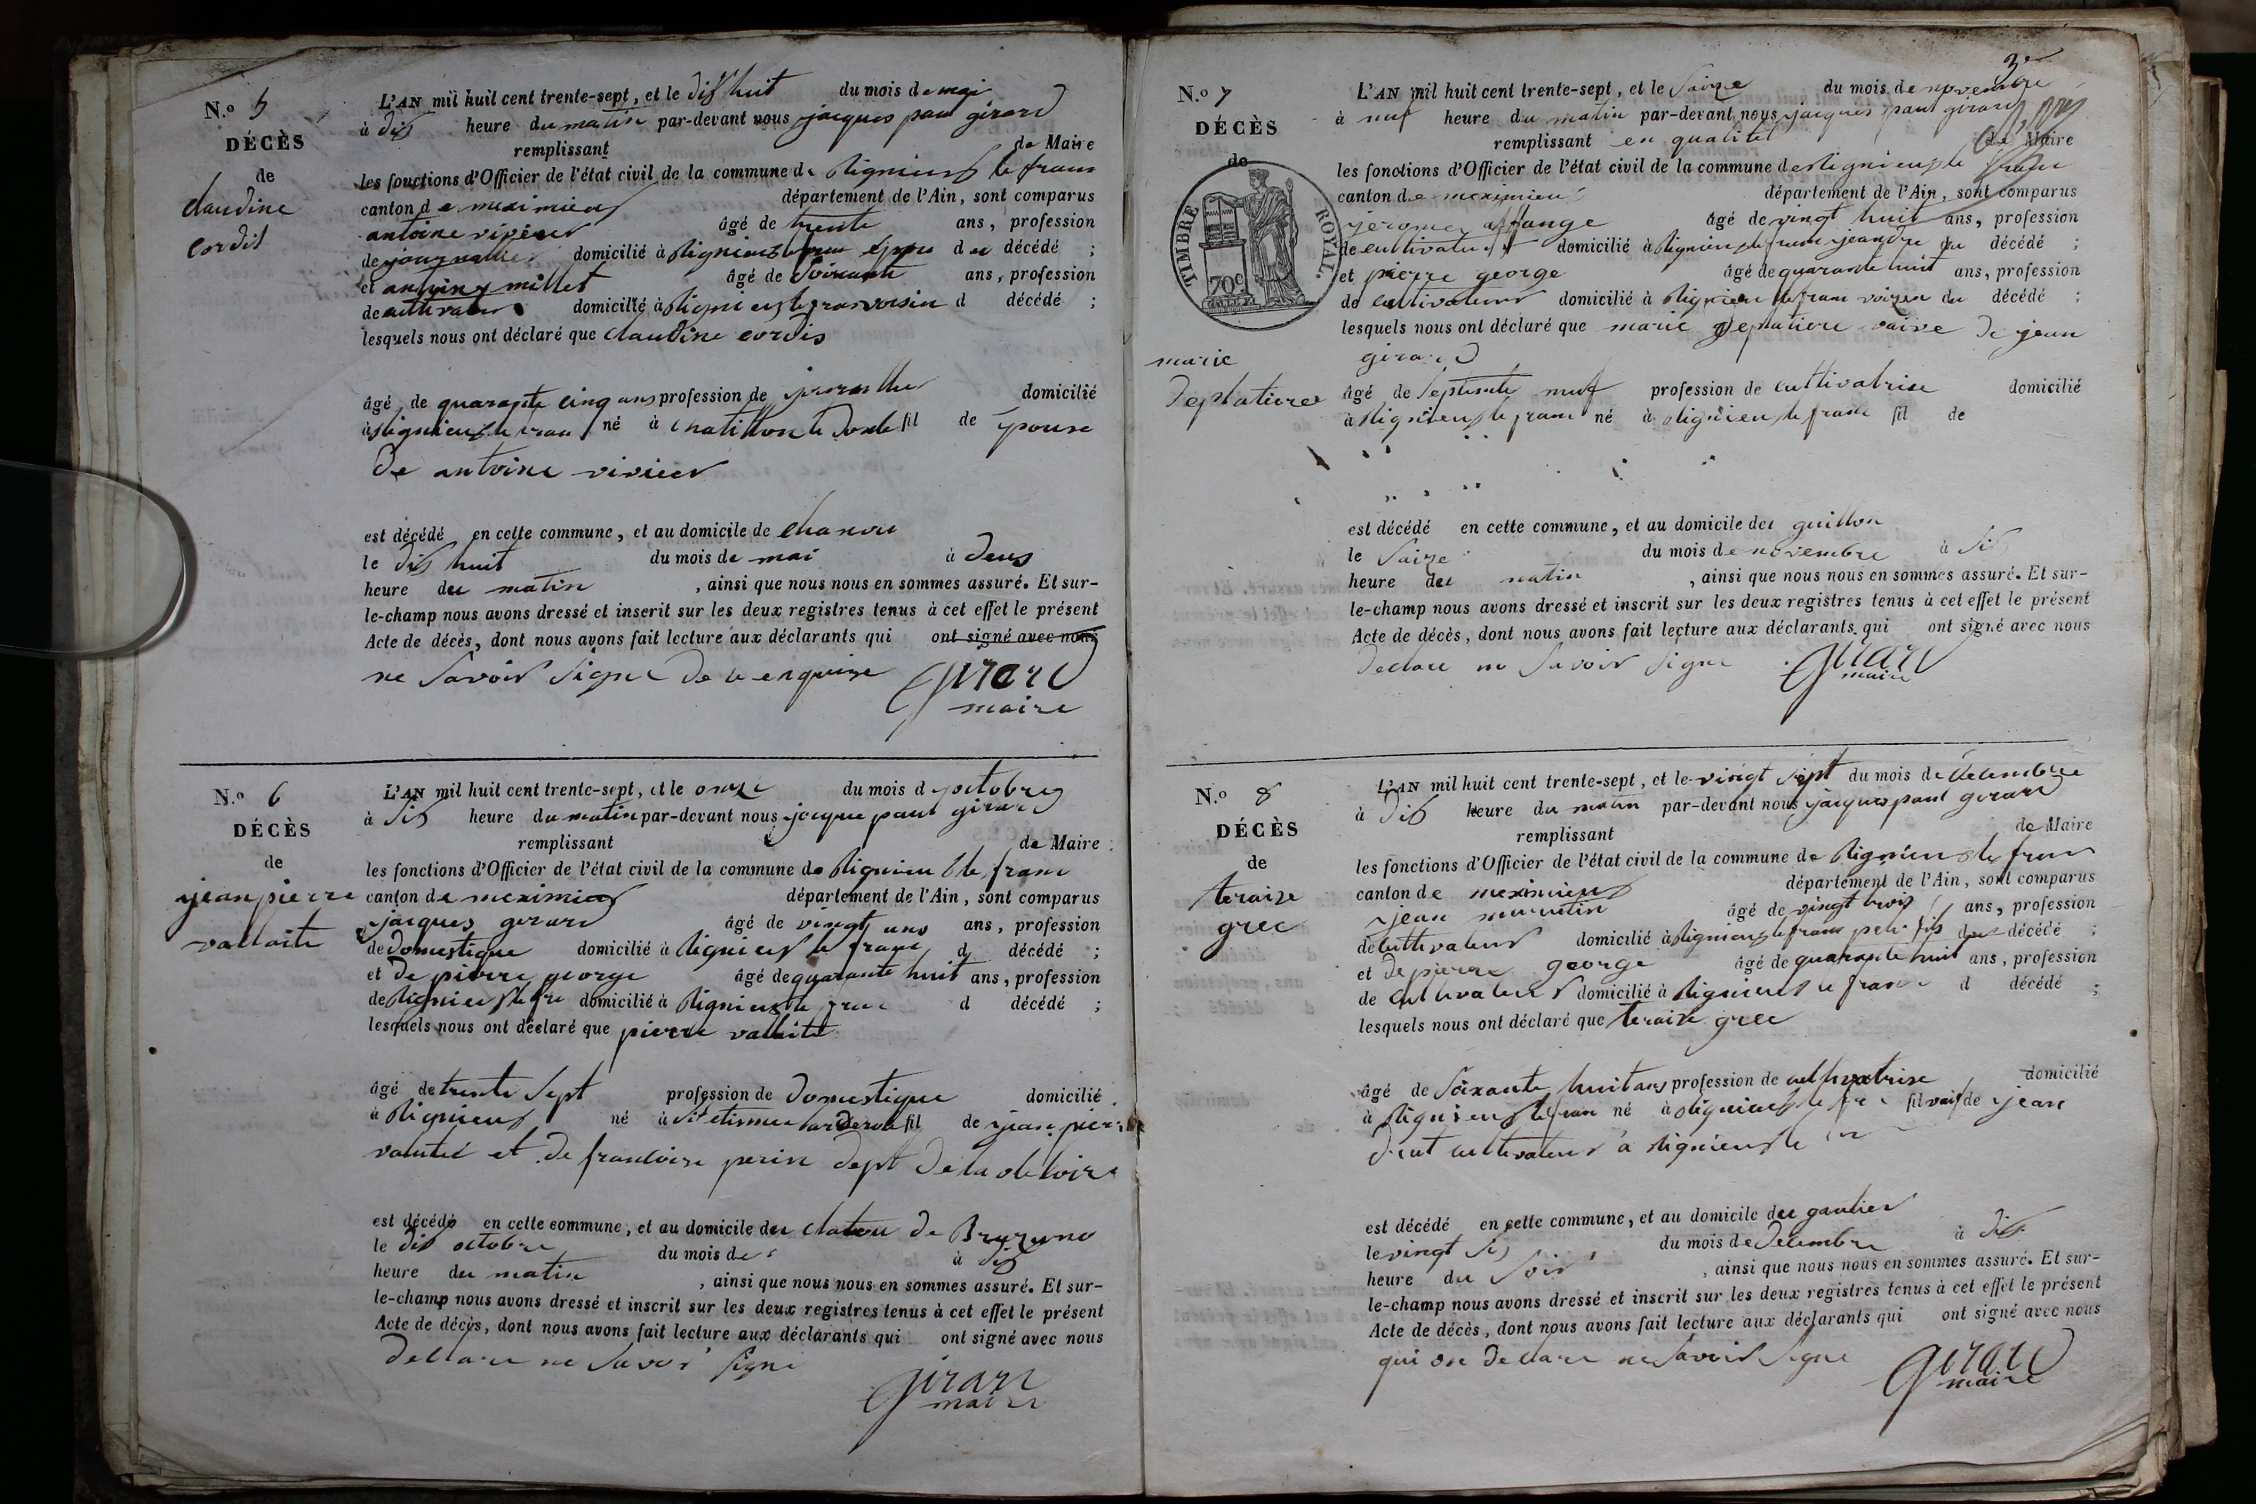 N.o 5
DÉCÈS
de
claudine
cordis
L'AN mil huit cent trente-sept, et le dix huit du mois de mai
à dix heure du matin par-devant nous jacques paul girard
remplissant de Maire
les fonctions d'Officier de l'état civil de la commune de Rignieux le franc
canton de meximieux département de l'Ain, sont comparus
antoine vivier âgé de trente ans, profession
de journallier domicilié à Rignieux le franc du décédé ;
et antoine millet âgé de Soixante ans, profession
de cultivateur domicilié à Rignieux le franc voisin d décédé ;
lesquels nous ont déclaré que claudine cordis
âgé de quarante cinq ans profession de domicilié
à Rignieux le franc né à chatillon le fil de épouse
de antoine vivier
est décédé en cette commune, et au domicile de
le dix huit du mois de mai à deux
heure du matin , ainsi que nous nous en sommes assuré. Et sur-
le-champ nous avons dressé et inscrit sur les deux registres tenus à cet effet le présent
Acte de décès, dont nous avons fait lecture aux déclarants qui ont signé avec nous
ne Savoir Signe de le enquire Girard
maire
N.o 6
DÉCÈS
de
jean pierre
valtaite
L'AN mil huit cent trente-sept, et le onze du mois d octobre
à dix heure du matin par-devant nous jacque paul girard
remplissant de Maire
les fonctions d'Officier de l'état civil de la commune de Rignieu le franc
canton de meximieux département de l'Ain, sont comparus
jacques girard âgé de vingt uns ans, profession
de Domestique domicilié à Rignieux le franc d décédé ;
et de pierre george âgé de quarante huit ans, profession
de Rignieux le fra domicilié à Rignieux le franc d décédé ;
lesquels nous ont déclaré que pierre
âgé de trente Sept profession de domestique domicilié
à Rignieux né à St etienne fil de jean pierre
et de francoise perin dept de la de loire
est décédé en cette commune, et au domicile du de
le dix octobre du mois de à dix
heure du matin , ainsi que nous nous en sommes assuré. Et sur-
le-champ nous avons dressé et inscrit sur les deux registres tenus à cet effet le présent
Acte de décès, dont nous avons fait lecture aux déclarants qui ont signé avec nous
declare ne Savoir Signe
Girard
maire
3e
N.o 7
DÉCÈS
de
TIMBRE ROYAL.
70c
marie
deplatiere
L'AN mil huit cent trente-sept, et le Saize du mois de novembre
à neuf heure du matin par-devant nous jacques paul girard
remplissant en qualité de Maire
les fonctions d'Officier de l'état civil de la commune de Rignieux le franc
canton de meximieu département de l'Ain, sont comparus
jerome âgé de vingt huit ans, profession
de cultivateur domicilié à Rignieux le franc jeandre du décédé ;
et pierre george âgé de quarante huit ans, profession
de cultivateur domicilié à Rignieu le franc voizin du décédé ;
lesquels nous ont déclaré que marie deplatiere vaive de jean
girard
âgé de Septente neuf profession de cultivatrise domicilié
à Rignieux le franc né à Rignieux le franc fil de
est décédé en cette commune, et au domicile du guillon
le Saize du mois de novembre à Six
heure du matin , ainsi que nous nous en sommes assuré. Et sur-
le-champ nous avons dressé et inscrit sur les deux registres tenus à cet effet le présent
Acte de décès, dont nous avons fait lecture aux déclarants qui ont signé avec nous
Declare ne Savoir Signe Girard
maire
N.o 8
DÉCÈS
de
teraise
grec
L'AN mil huit cent trente-sept, et le vingt sept du mois de decembre
à dix heure du matin par-devant nous jacques paul girard
remplissant de Maire
les fonctions d'Officier de l'état civil de la commune de Rignieux le franc
canton de meximieux département de l'Ain, sont comparus
jean âgé de vingt trois ans, profession
de cultivateur domicilié à Rignieux le franc peti fils du décédé ;
et de pierre george âgé de quarante huit ans, profession
de cultivateur domicilié à Rignieux le franc d décédé ;
lesquels nous ont déclaré que teraise grec
âgé de Soixante huit ans profession de cultivatrise domicilié
à Rignieux le franc né à Rignieux le fil de jean
cultivateur à Rignieux le
est décédé en cette commune, et au domicile du gautier
le vingt Six du mois de decembre à dix
heure du Soir , ainsi que nous nous en sommes assuré. Et sur-
le-champ nous avons dressé et inscrit sur les deux registres tenus à cet effet le présent
Acte de décès, dont nous avons fait lecture aux déclarants qui ont signé avec nous
qui on declare ne Savoir Signe Girard
maire